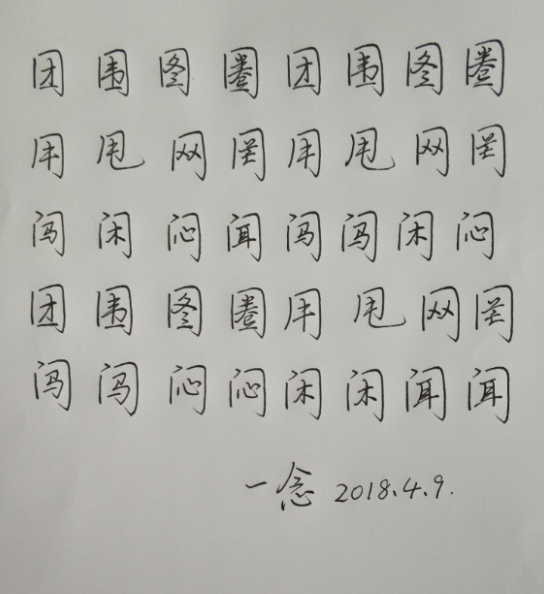 团围图圈团围图圈
用甩网罔用甩网罔
闯闲闷闻闯闯闲闷
团围图圈用甩网罔
闯闯闷闷闲闲闻闻
一念 2018.4.9.